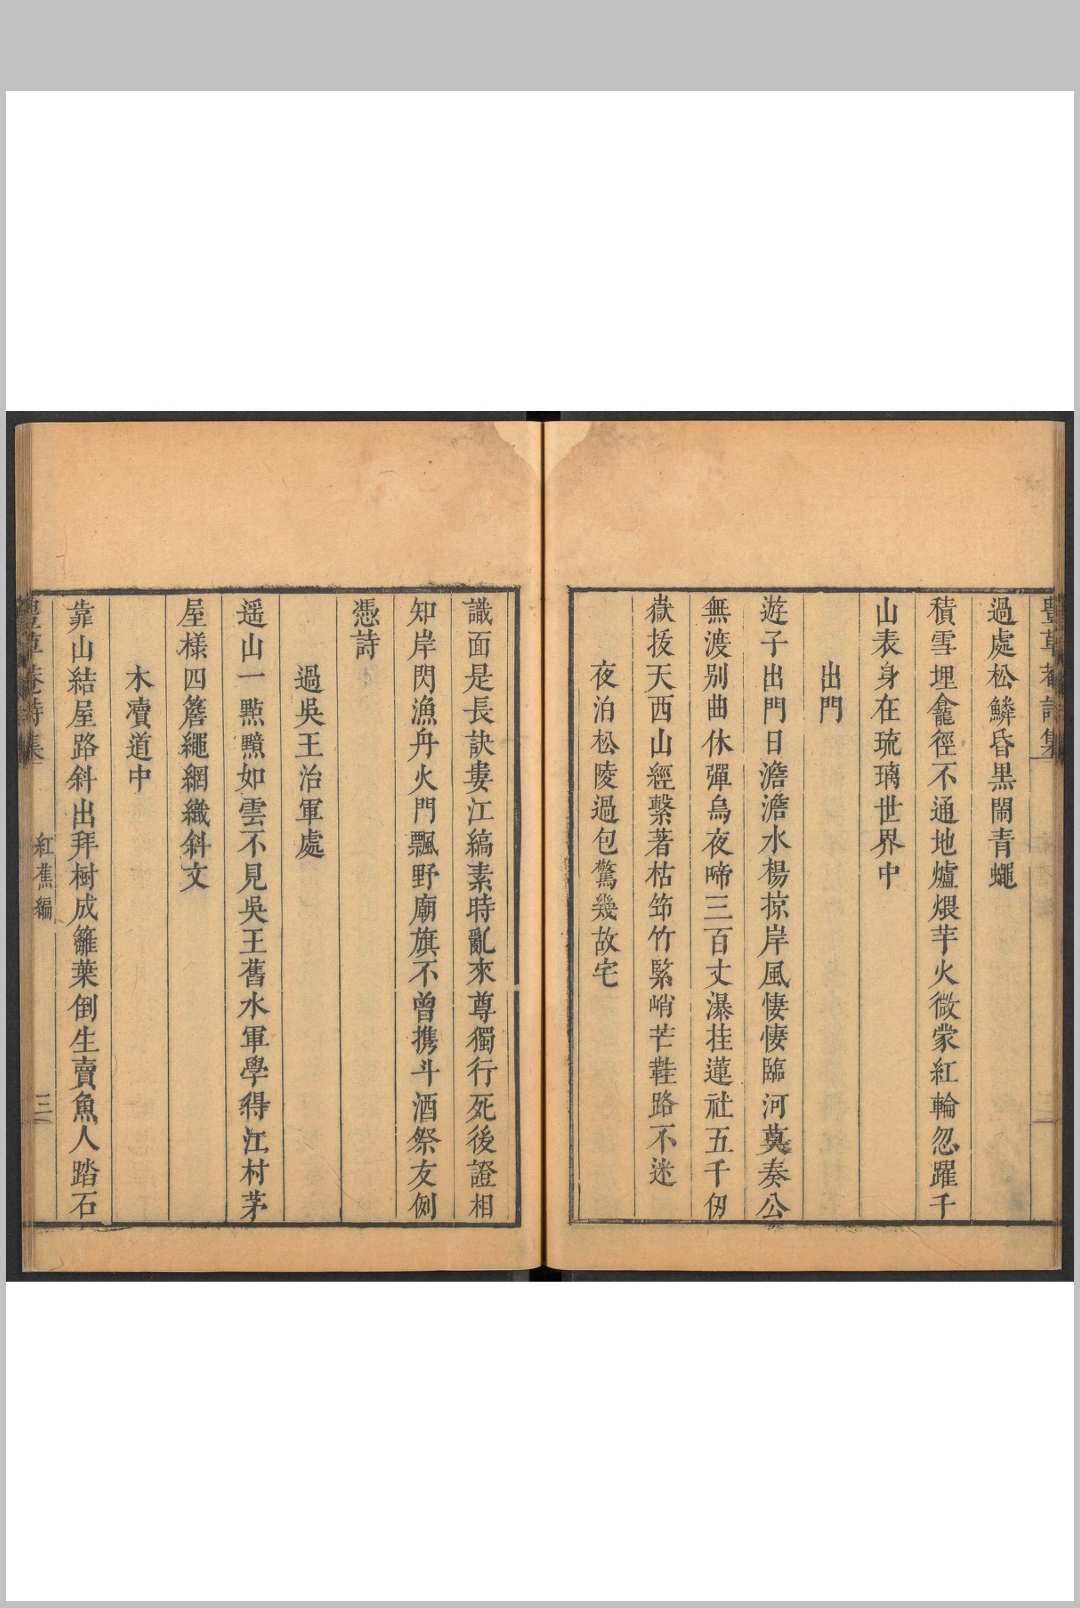 豐草菴詩集
過處松鱗昏黑鬧青蠅
積雪埋龕徑不通地爐煨芋火微蒙紅輪忽躍千
山表身在琉璃世界中
出門
遊子出門日澹澹水楊掠岸風悽悽臨河莫奏公
無渡别曲休彈烏夜啼三百丈瀑挂蓮社五千仞
嶽抜天西山經繫著枯笻竹緊峭芒鞋路不迷
夜泊松陵過包驚幾故宅
識面是長訣婁江縞素時亂來尊獨行死後證相
知岸閃漁舟火門飄野廟旗不曾携斗酒祭友例
憑詩
過吳王治軍處
遥山一㸃黯如雲不見吳王舊水軍學得江村茅
屋様四簷繩網織斜文
木凟道中
靠山結屋路斜出拜樹成籬葉倒生賣魚人踏石
豐草菴詩集
紅蕉編
三